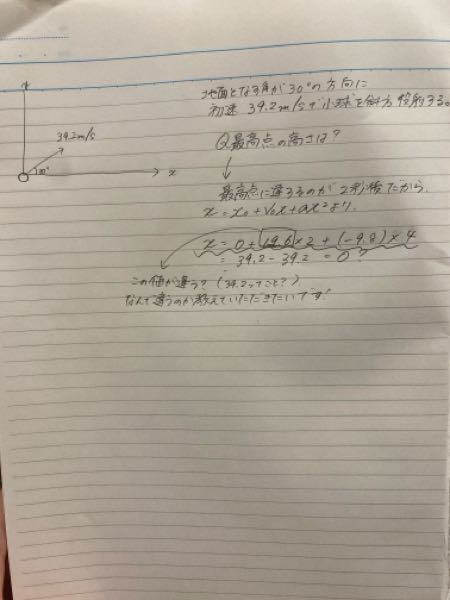 地面となす角が30°の方向に
初速 39.2m/sで小球を斜方投射する。
39.2m/s
30°
x
Q最高点の高さは?
最高点に達するのが2秒後だから、
x = x₀ + v₀t + at²より、
x = 0 + 19.6 × 2 + (-9.8) × 4
= 39.2 - 39.2 = 0?
この値が違う?(39.2ってこと?)
なんで違うのか教えていただきたいです!